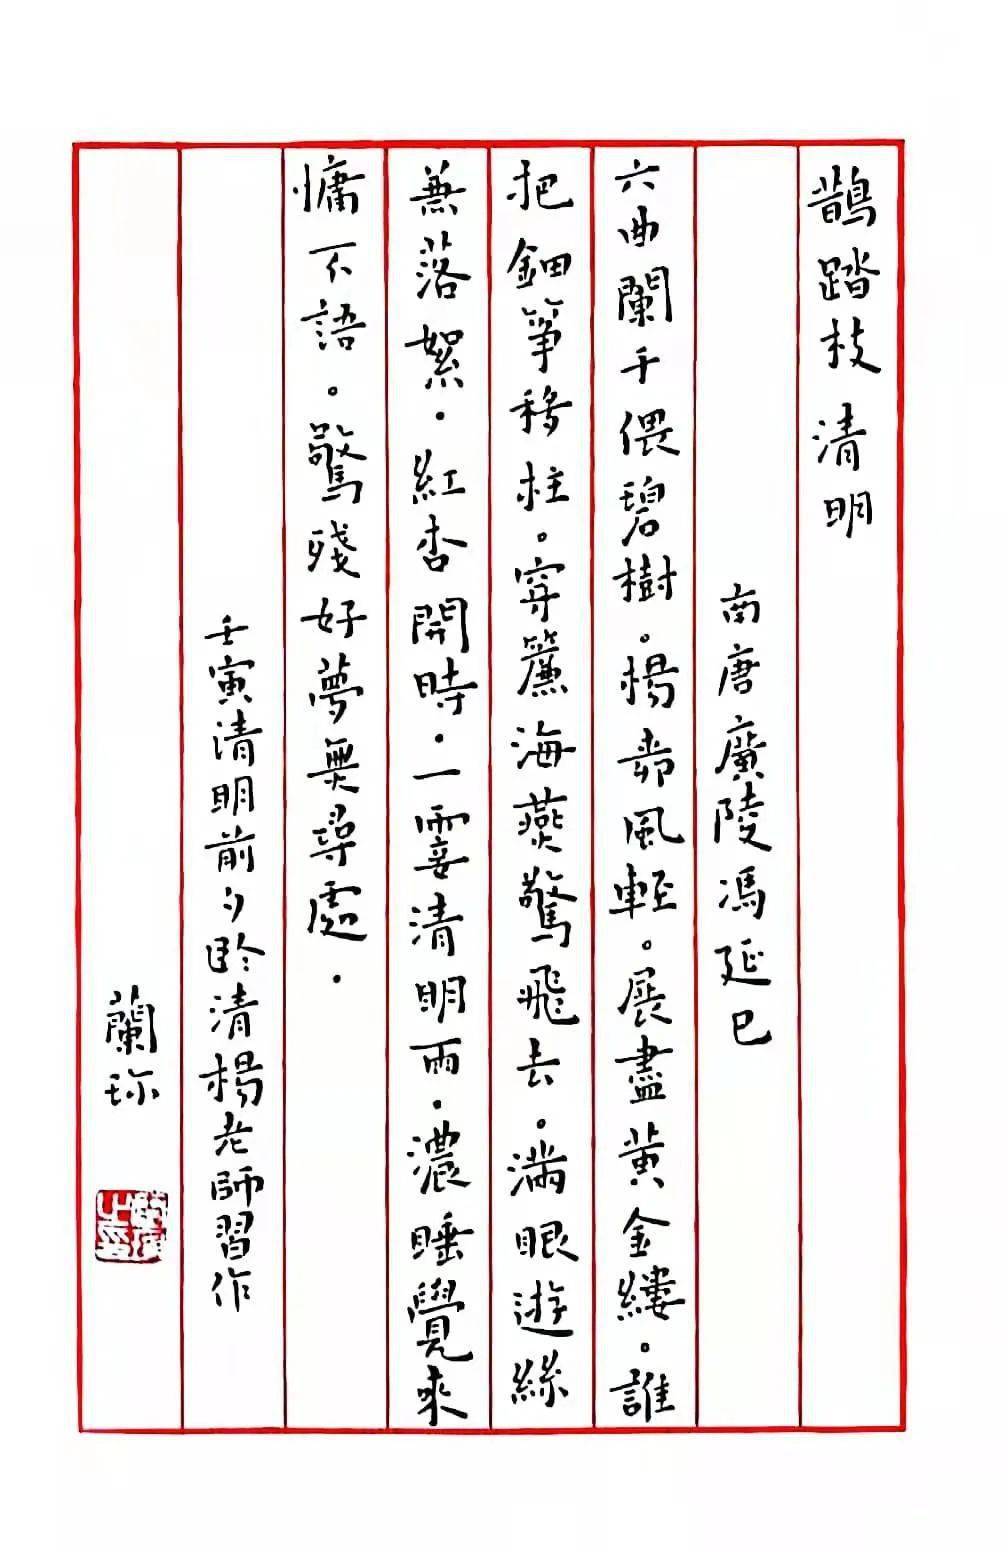 鵲踏枝 清明
南唐廣陵馮延巳
六曲闌干偎碧樹。楊柳風輕。展盡黃金縷。誰
把鈿箏移柱。穿簾海燕驚飛去。滿眼遊絲
兼落絮．紅杏開時．一霎清明雨．濃睡覺來
慵不語。驚殘好夢無尋處．
壬寅清明前夕臨清楊老師習作
蘭珎